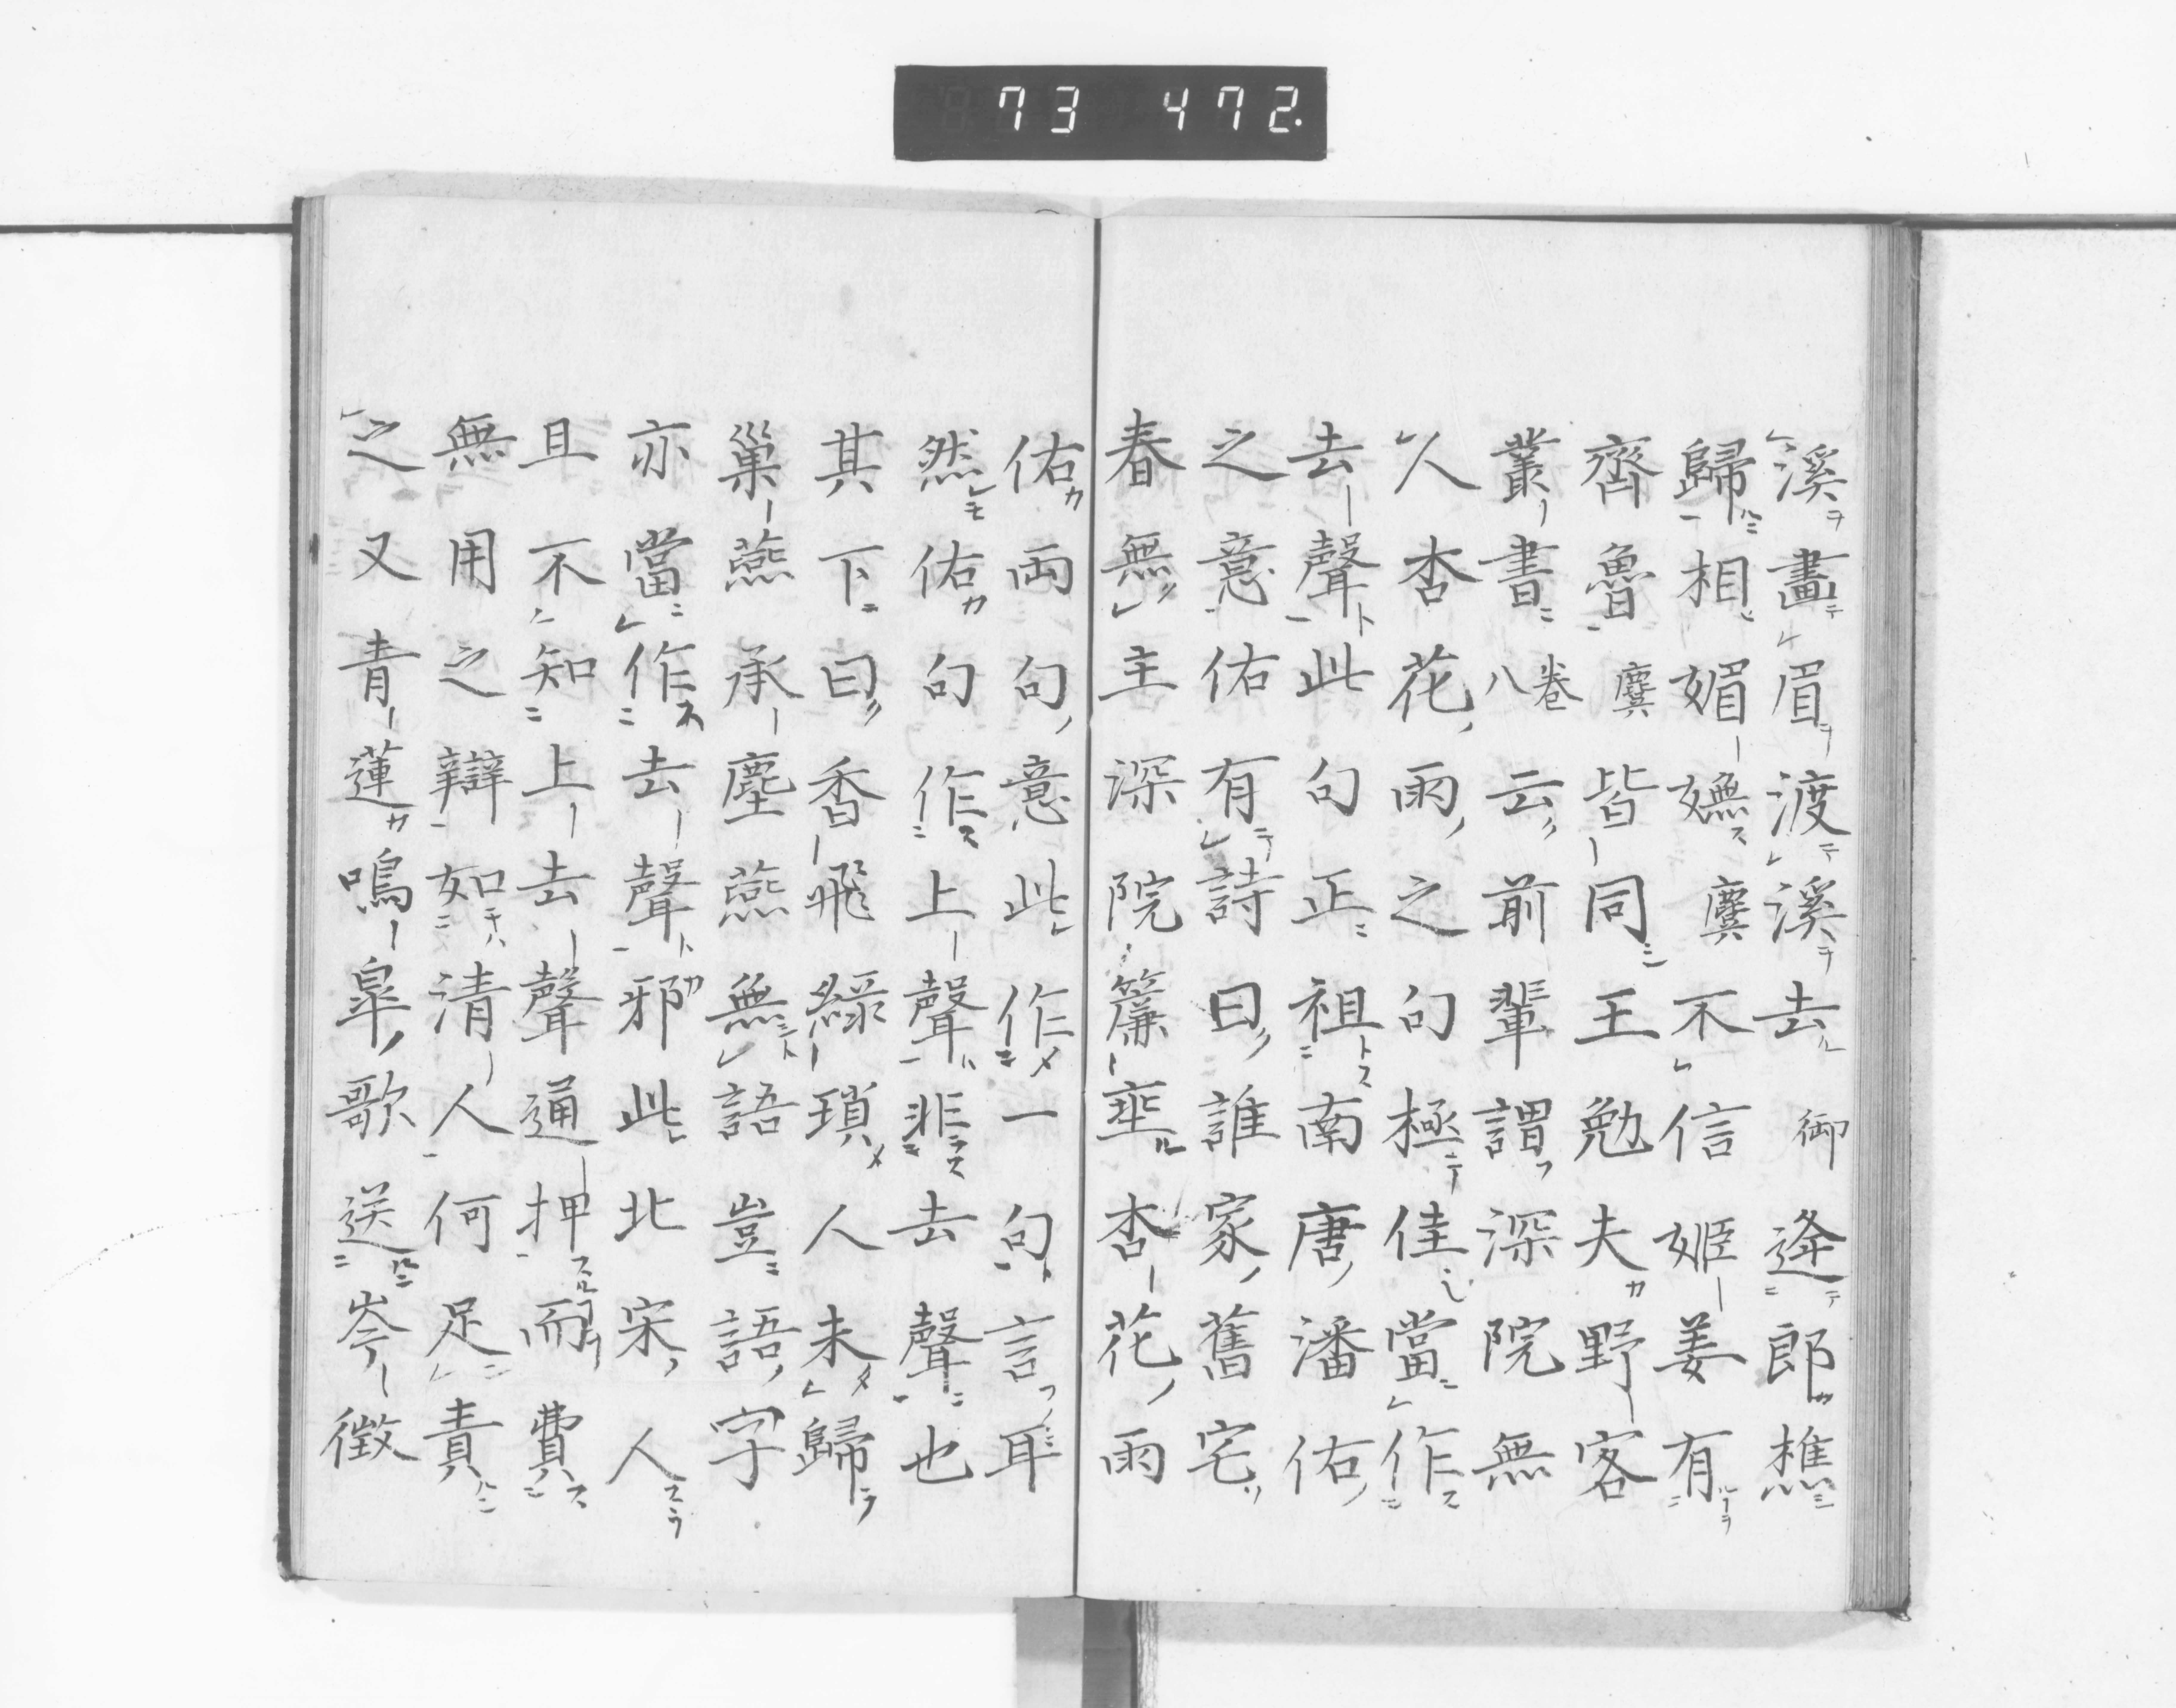 73 472.
溪畫眉渡溪去御逢郎樵
歸相媚嫵麌不信姬姜有
齊魯麌皆同王勉夫野客
叢書八卷云前輩謂深院無
人杏花雨之句極佳當作
去聲此句正祖南唐潘佑
之意佑有詩曰誰家舊宅
春無主深院簾垂杏花雨
佑兩句意此作一句言耳
然佑句作上聲非去聲也
其下曰香飛綠瑣人未歸
巢燕承塵燕無語豈語字
亦當作去聲邪此北宋人
且不知上去聲通押而費
無用之辯如清人何足責
之又青蓮鳴皐歌送岑徵